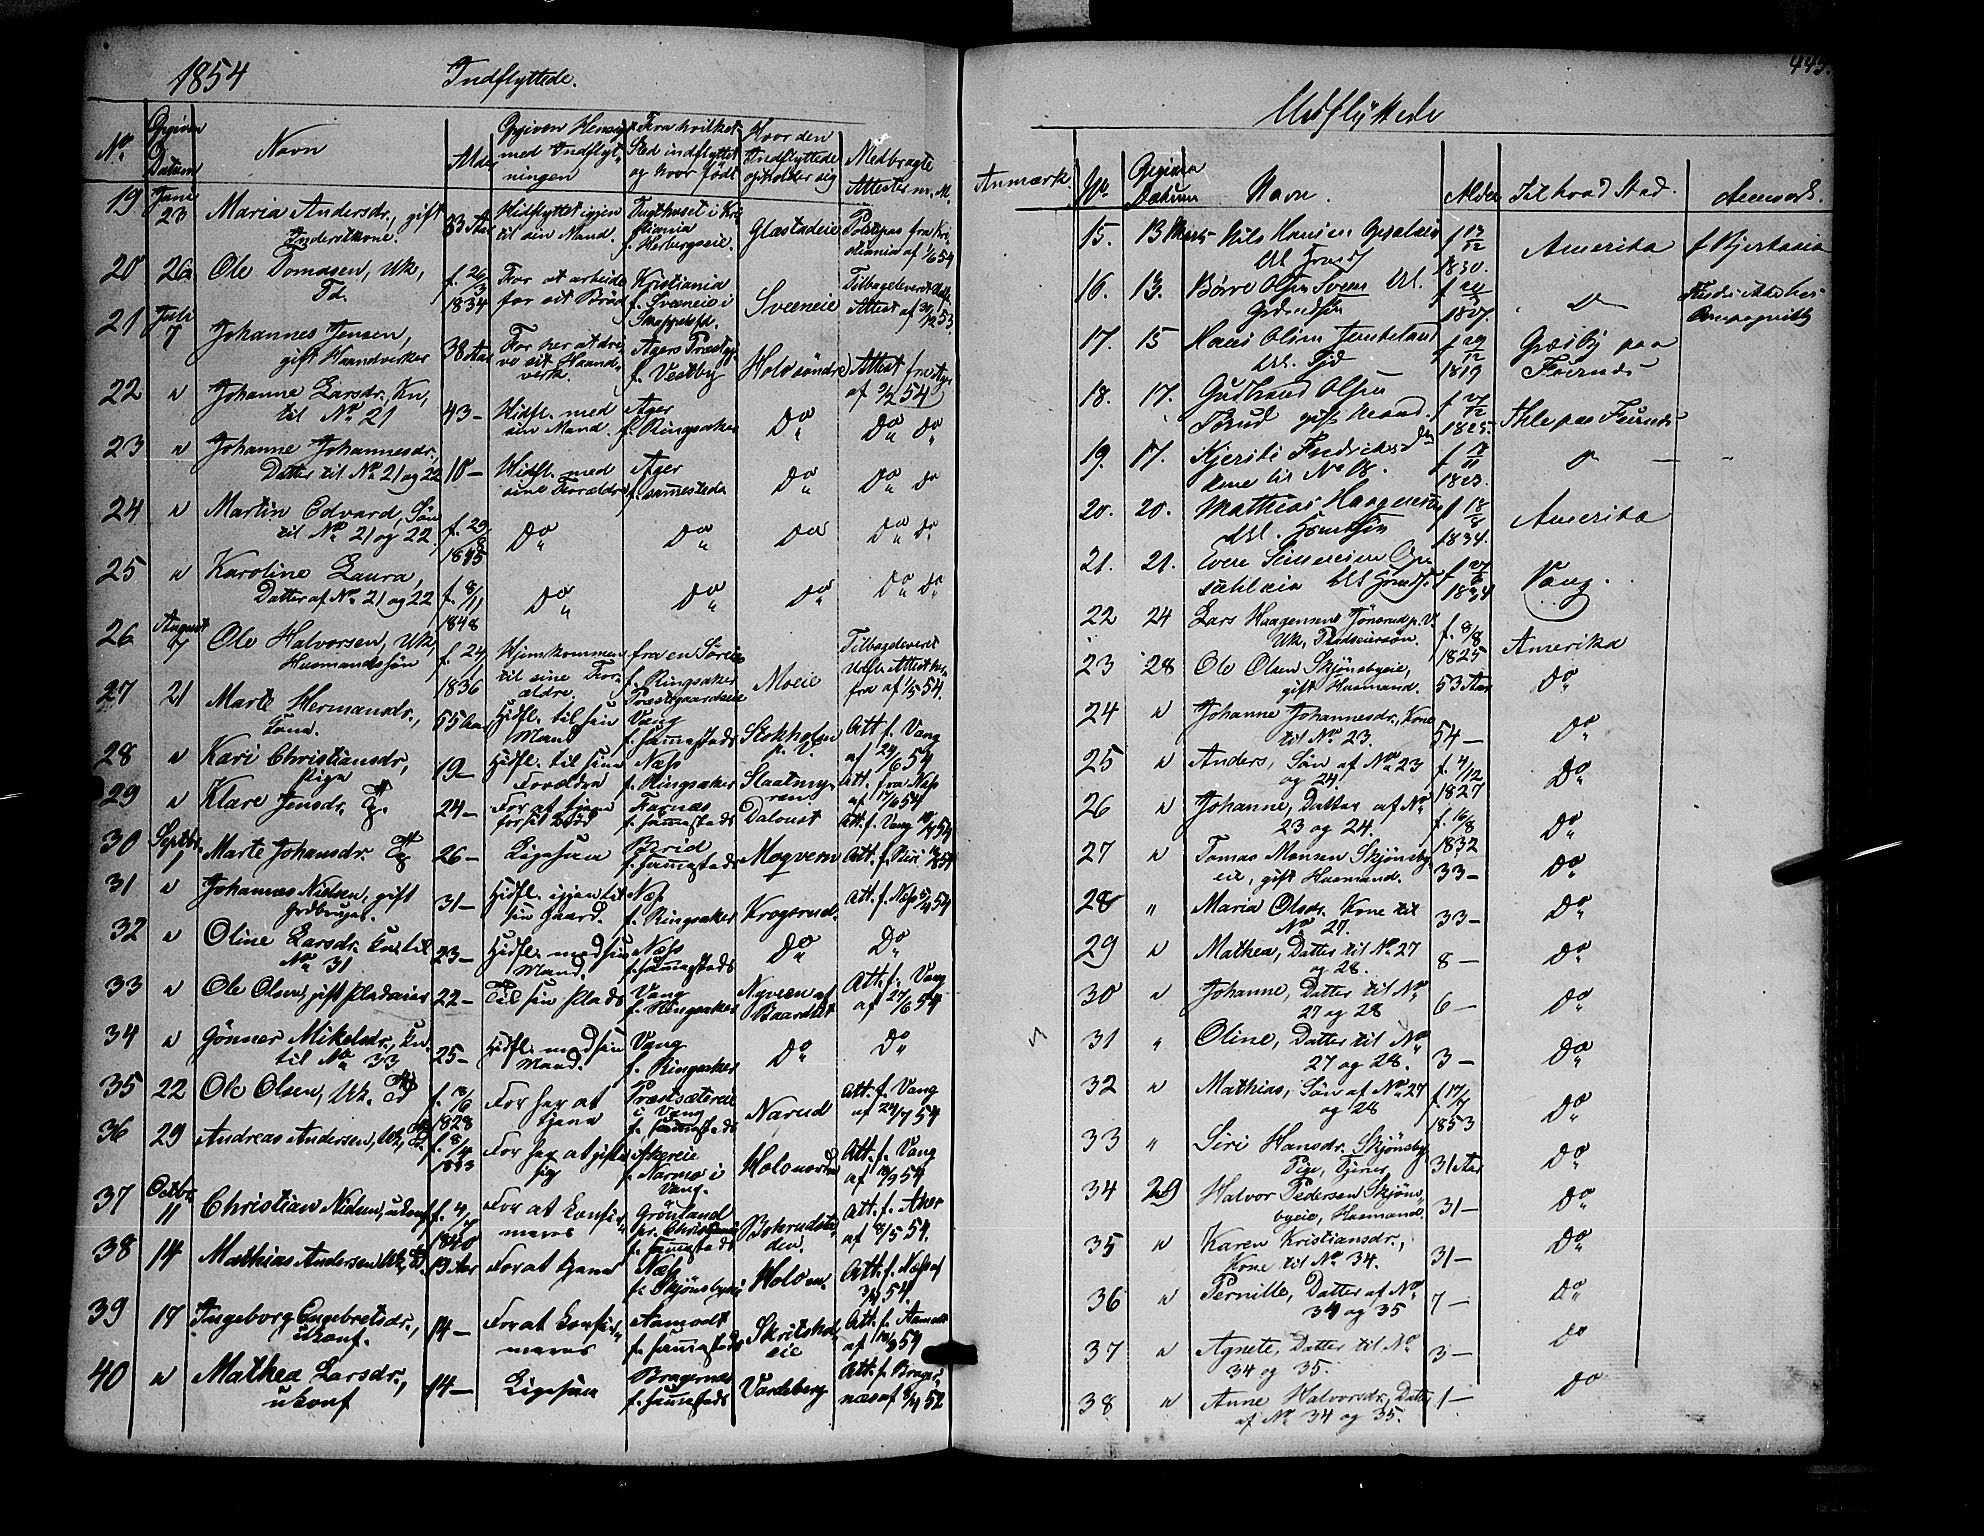 1854 Indflyttede.
No. Opgiven Datum Navn Alder Opgiven Hensigt med Indflytningen Fra hvilket Sted indflyttet og hvor født Hvor den Indflyttede opholder sig Medbragte Attester m. M. Anmærk.
19 Juni 23 Maria Andersdr., gift Inderstkone. 33 Aar Hidflyttet igjen til sin Mand. Tugthuset i Kristiania f. Herbergseie. Glæstadeie Politipas fra Kristiania af 1/6 54
20 26 Ole Tomasen, Uk, Td. f. 26/3 1834 For at arbeide for sit Brød Kristiania f. Sveeneie i Sveeneie Tilbageleveret Attest af
21 Juli 7 Johannes Jensen, gift Haandverker 38 Aar For her at drive sit Haandverk. Agers Præstgj. f. Vestby Holo søndre Attest fra Ager af 2/2 54
22 " Johanne Larsdr. Kn, til No. 21 43 – Hidfl. med sin Mand. Ager f. Ringsaker Do Do Do
23 " Johanne Johannesdr. Datter til No. 21 og 22 10 – Hidfl. med sine Forældre Ager f. sammesteds Do Do Do
24 " Martin Edvard, Søn til No. 21 og 22 f. 29/8 1845 Do Do Do Do Do
25 " Karoline Laura, Datter af No. 21 og 22 f. 8/11 1848 Do Do Do Do Do
26 August 7 Ole Halvorsen, Uk, Husmandssøn f. 24/1 1836 Hjemkommen til sine Forældre. fra en Søreie f. Ringsaker Præstgaardseie Moeie Tilbageleveret Udfl. Attest herfra af 1/5 54.
27 21 Marte Hermansdr., Kone. 55 Aar Hidfl. til sin Mand Vang f. sammesteds Stokholm Att. f. Vang af 24/6 54
28 " Kari Christiansdr., Pige 19 – Hidfl. til sine Forældre Næs f. Ringsaker Slaatmyren Att. fra Næs af 17/6 54
29 " Klare Jensdr. Tj. 24 – For at tjene for sit Brød Farnæs f. sammesteds Dalvust Att. f. Vang 54
30 Septbr. 1 Marte Johansdr. Tj 26 – Ligesaa Birid f. sammesteds Mogvern Att. f. Biri 54
31 " Johannes Nielsen, gift Grdbruger. 31 – Hidfl. igjen til sin Gaard. Næs f. Ringsaker Krogsrud Att. f. Næs 54
32 " Oline Larsdr. Kn. til No. 31 23 – Hidfl. med sin Mand. Næs f. sammesteds Do Do
33 " Ole Olsen, gift Pladseier 22 – Til sin Plads Vang f. Ringsaker Nyveen af Baardset Att. f. Vang af 27/6 54
34 " Gønner Mikelsdr., Kn. til No. 33 25 – Hidfl. med sin Mand. Vang f. Ringsaker Do Do
35 22 Ole Olsen, Uk. Td 1828 For her at tjene Præstsætereie i Vang f. sammesteds Narud Att. f. Vang af 24/7 54
36 29 Andreas Andersen, Uk, f. 8/4 1833 For her at gifte sig Akereie f. Narmo i Vang. Holo nordre Att. f. Vang af 54
37 Octbr. 11 Christian Nielsen, ukonf. 1840 For at konfirmeres Grønland pr. Christiania f. sammesteds Att. f. Aker af 8/5 54.
38 14 Mathias Andersen Uk, 19 Aar For at tjene Næs f. Skjønsbyeie Holo Att. f. Næs af 54.
39 17 Ingeborg Engebretsdr., ukonf. 14 – For at konfirmeres Aamodt f. sammesteds eie Att. f. Aamodt af 54
40 " Mathea Larsdr., ukonf 14 – Ligesaa Bragernæs f. sammesteds Vardeberg Att. f. Bragernæs af 52
445.
Udflyttede
No Opgiven Datum Navn. Alder Til hvad Sted. Anmærk.
15. 13 Marts Nils Hansen f 13/12 1830. Amerika
16. 13. Børre Olsen Sveen Ul. 1827. D
17. 15 Hans Olsen 1819 Græsby paa Furnæs
18. 17. Gudbrand Olsen gift Mand. 1825. paa Furnæs
19. 17. Kjersti Fredriksd Kone til No 18. 1823. D – –
20. 20. Matthias Haagensen f 18/8 1834. Amerika
21. 21. Even Simensen 1834 Vang.
22 24 Lars Haagensen Uk, Pladseiersøn. f. 8/8 1825 Amerika
23 28 Ole Olsen Skjønsbyeie, gift Husmand. 53 Aar Do
24 " Johanne Johannesdr., Kone til No. 23. 54 – Do
25 " Anders, Søn af No. 23 og 24. f. 4/12 1827 Do
26 " Johanne, Datter af No. 23 og 24. f. 16/8 1832 Do
27 " Tomas Monsen Skjønsbyeie, gift Husmand. 33 – Do
28 " Maria Olsdr. Kone til No. 27. 33 – Do
29 " Mathea, Datter til No. 27 og 28. 8 – Do
30 " Johanne, Datter til No. 27 og 28 6 – Do
31 " Oline, Datter til No. 27 og 28. 3 – Do
32 " Mathias, Søn af No. 27 og 28 f. 17/7 1853 Do
33 " Siri Hansdr. Skjønsby Pige, Tjener 31 Aar Do
34 29 Halvor Pedersen Skjønsbyeie, Husmand. 31 – Do
35 " Karen Kristiansdr., Kone til No. 34. 31 – Do
36 " Pernille, Datter af No. 34 og 35 7 – Do
37 " Agnete, Datter til No. 34 og 35. 3 – Do
38 " Anne Halvorsdr., Datter af No. 34 og 35. 1 – Do